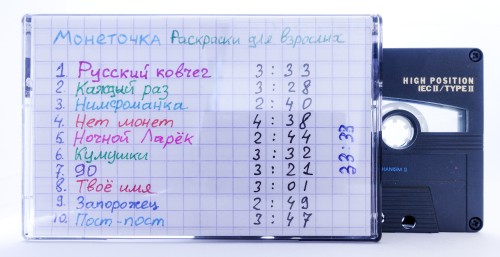 Монеточка Раскраски для взрослых
1. Русский ковчег 3:33
2. Каждый раз 3:28
3. Нимфоманка 2:40
4. Нет монет 4:38
5. Ночной Ларёк 2:44
6. Кумушки 3:32
7. 90 3:21
8. Твоё имя 3:01
9. Запорожец 2:49
10. Пост-пост 3:47
33:33
HIGH POSITION
IEC II/TYPE II